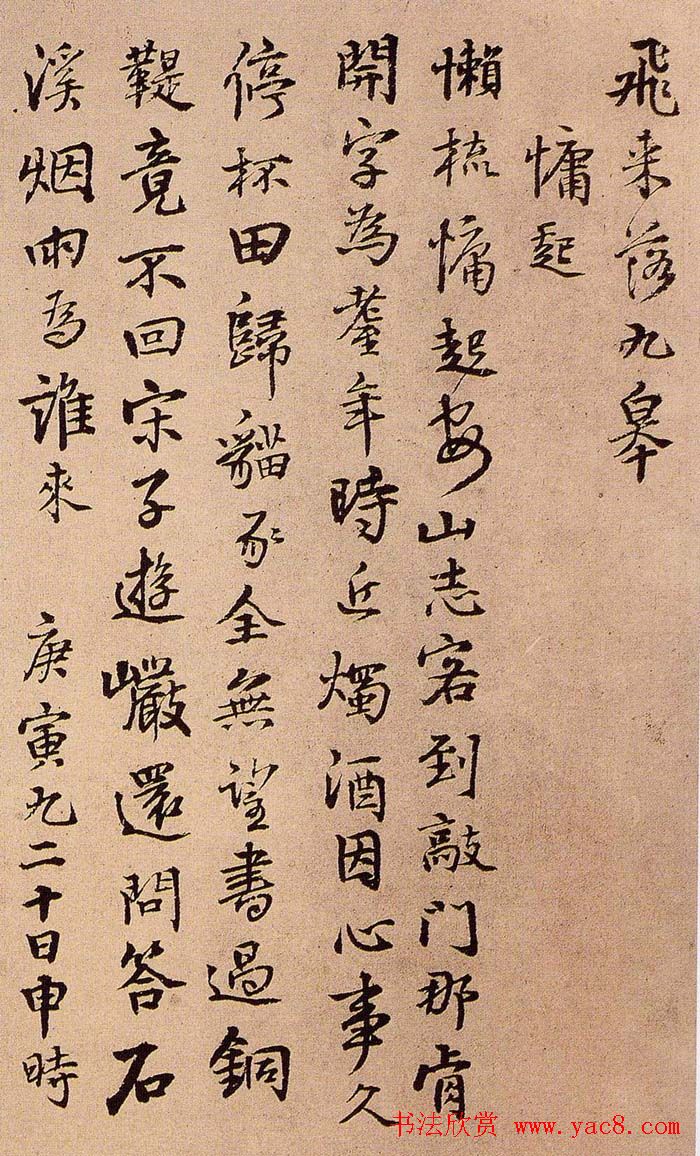 飛来落九皋
慵起
懶梳慵起安山志客到敲門那肯
開字為耋年時近燭酒因心事久
停杯田歸貓豕全無望書過銅
鞮竟不回宋子遊巖還問答石
溪烟雨為誰來 庚寅九二十日申時
书法欣赏 www.yac8.com